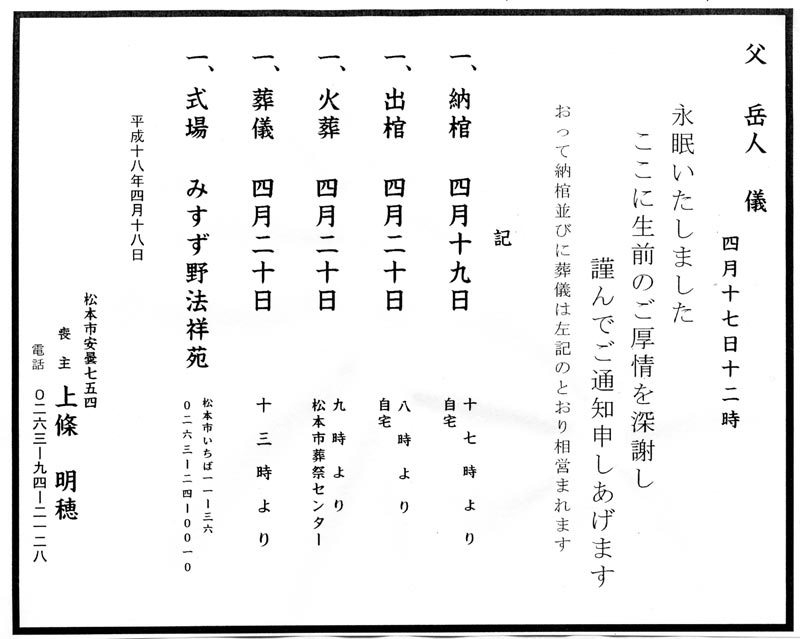 父 岳人 儀
四月十七日十二時
永眠いたしました
ここに生前のご厚情を深謝し
謹んでご通知申しあげます
おって納棺並びに葬儀は左記のとおり相営まれます
記
一、納棺 四月十九日 十七時より
自宅
一、出棺 四月二十日 八時より
自宅
一、火葬 四月二十日 九時より
松本市葬祭センター
一、葬儀 四月二十日 十三時より
一、式場 みすず野法祥苑 松本市いちば一一ー三六
〇二六三ー二四ー〇〇一〇
平成十八年四月十八日
松本市安曇七五四
喪主 上條 明穂
電話 〇二六三ー九四ー二一二八